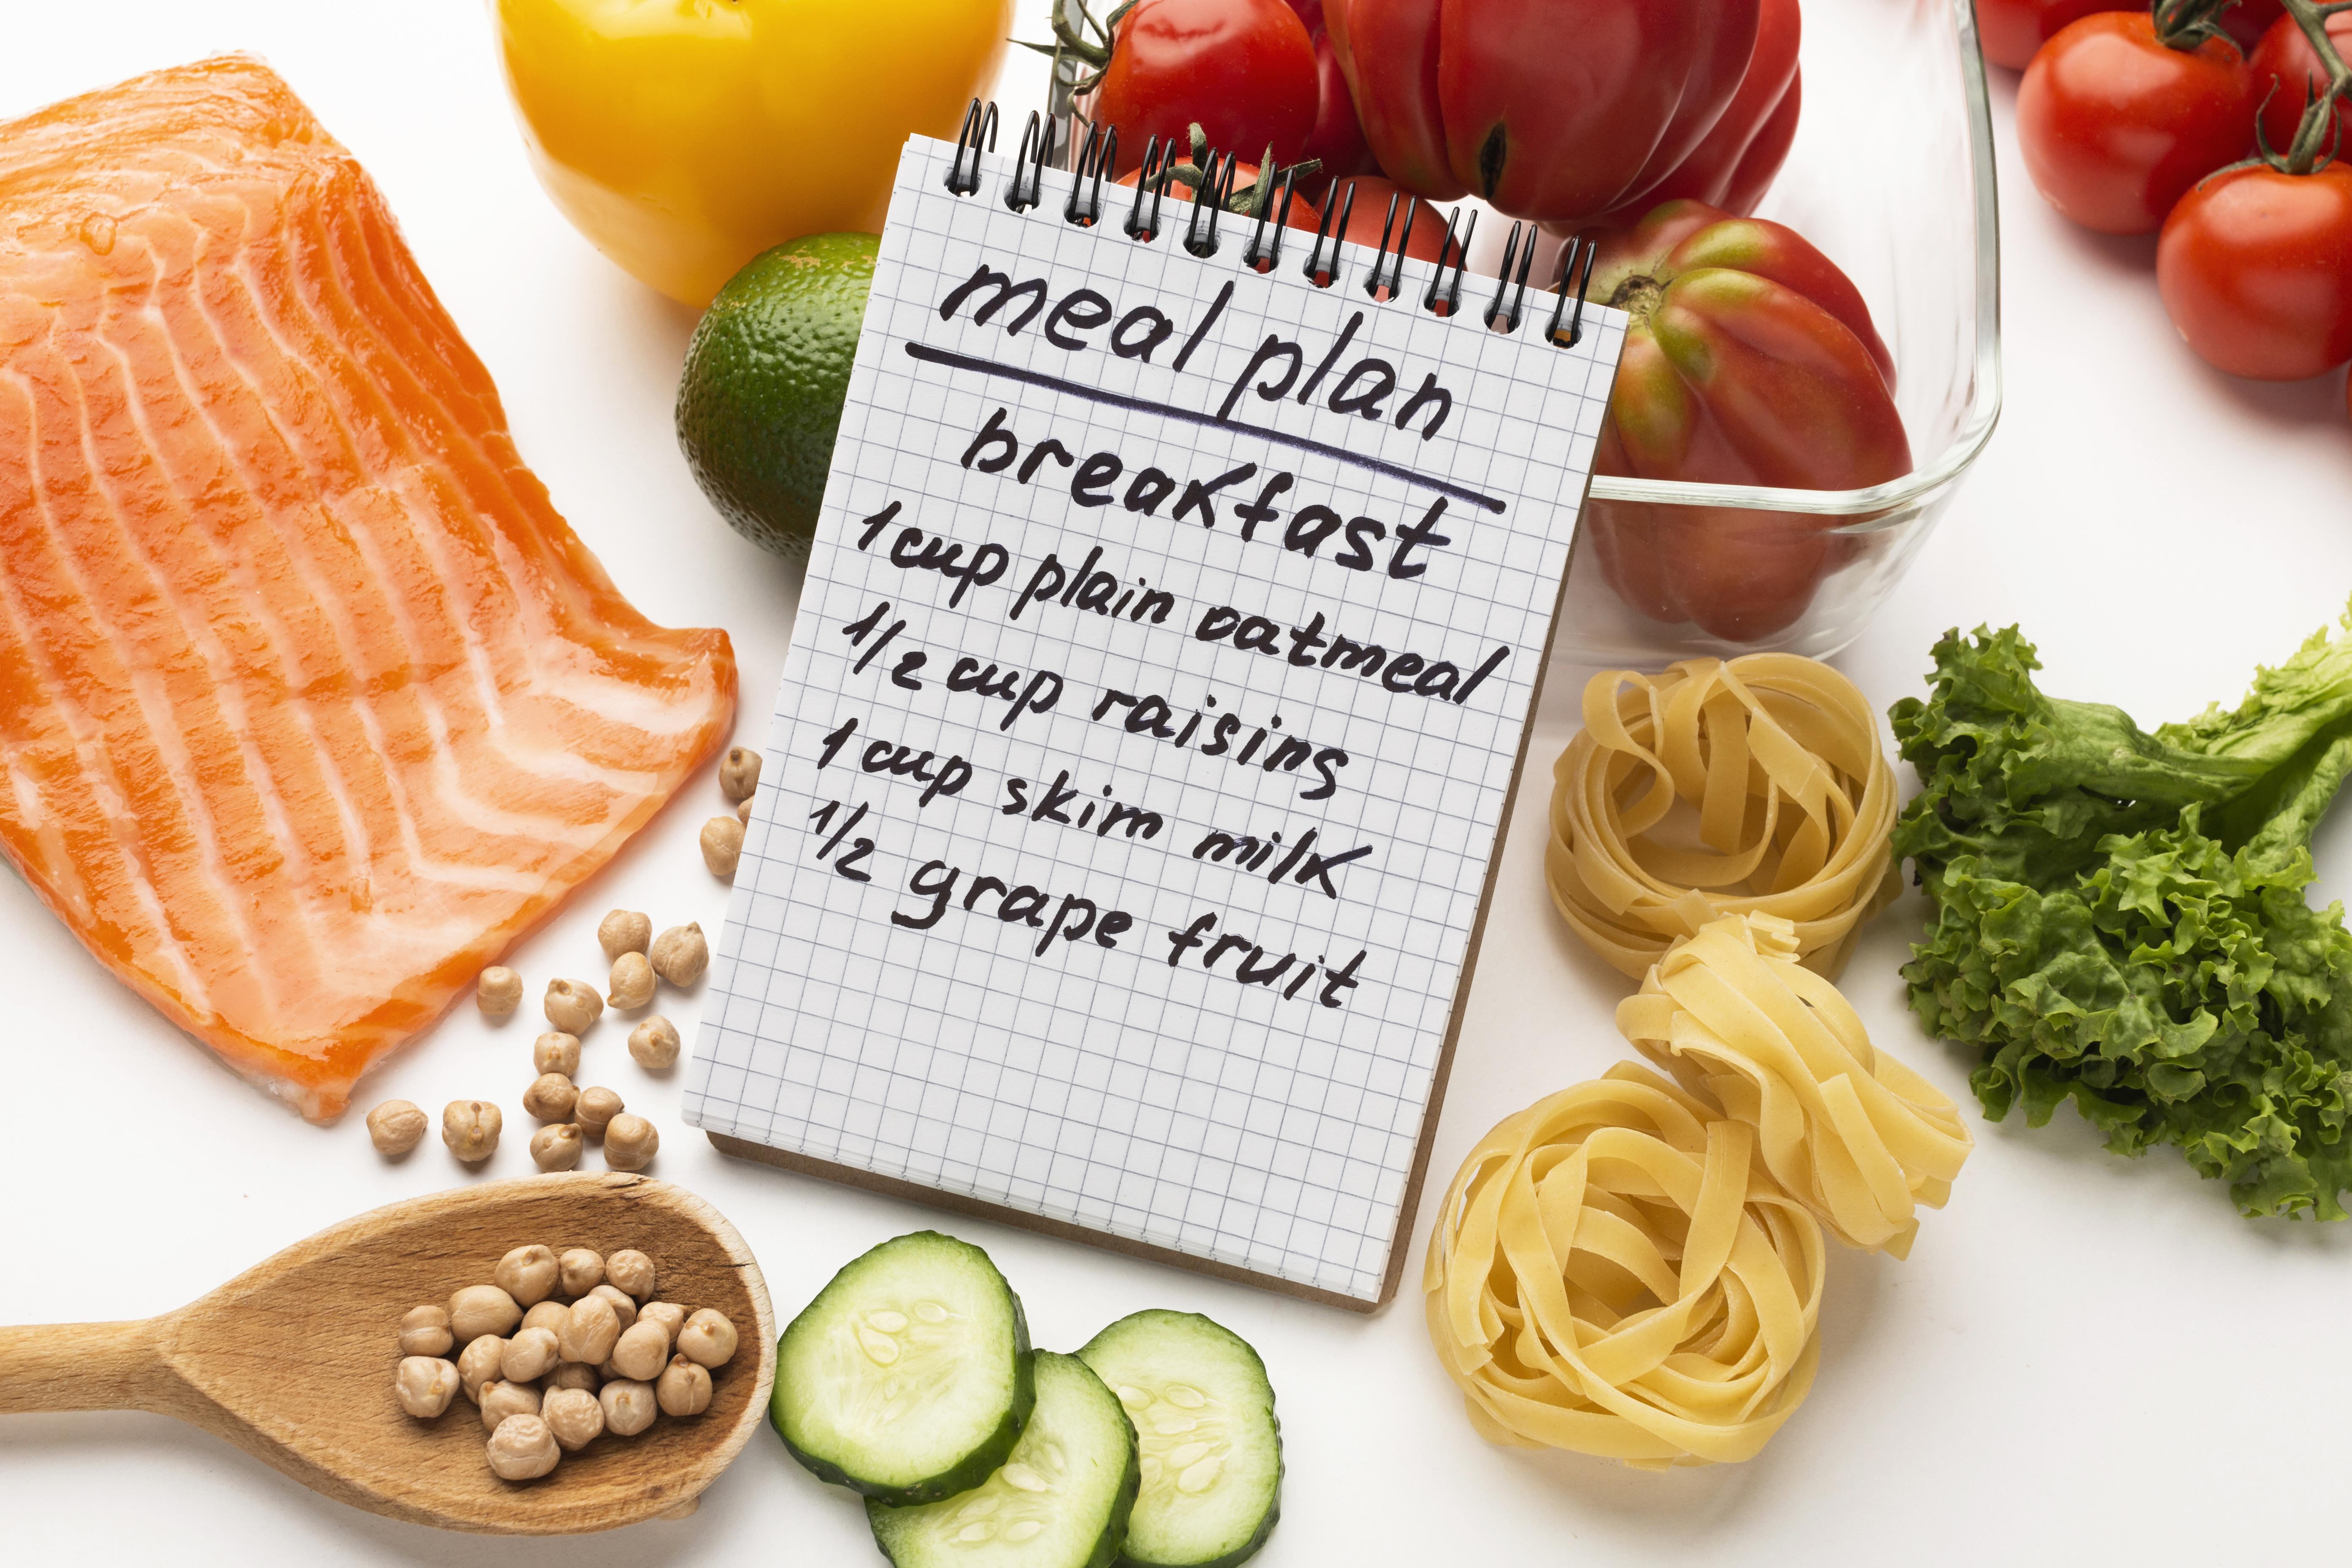 meal plan
breakfast
1 cup plain oatmeal
1/2 cup raising
1 cup skim milk
1/2 grape fruit